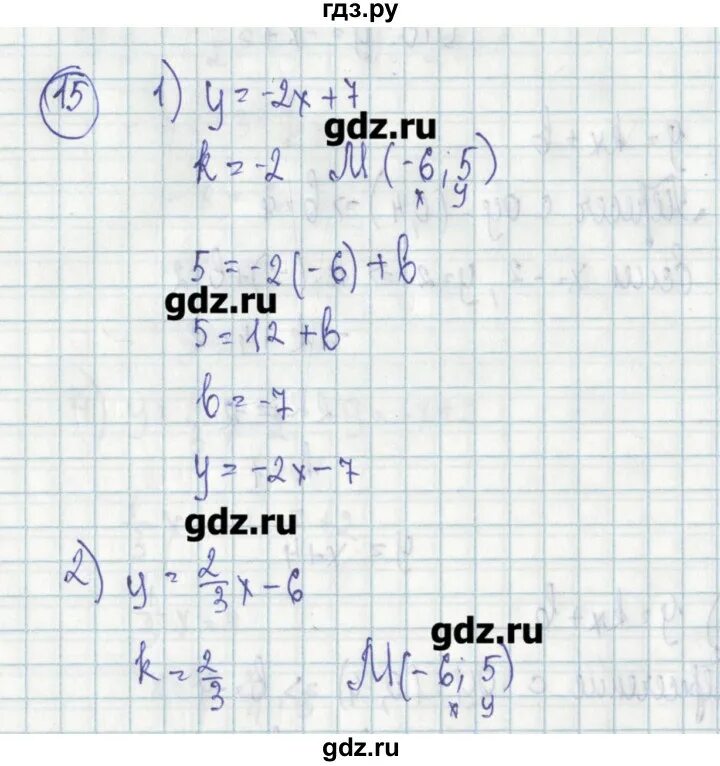 гдз.ру
15 1) y = -2x + 7
gdz.ru
k = -2 M (-6; 5)
x y
5 = -2(-6) + b
gdz.ru
5 = 12 + b
b = -7
y = -2x - 7
gdz.ru
2) y = 2/3 x - 6
gdz.ru
k = 2/3 M(-6; 5)
x y
gdz.ru